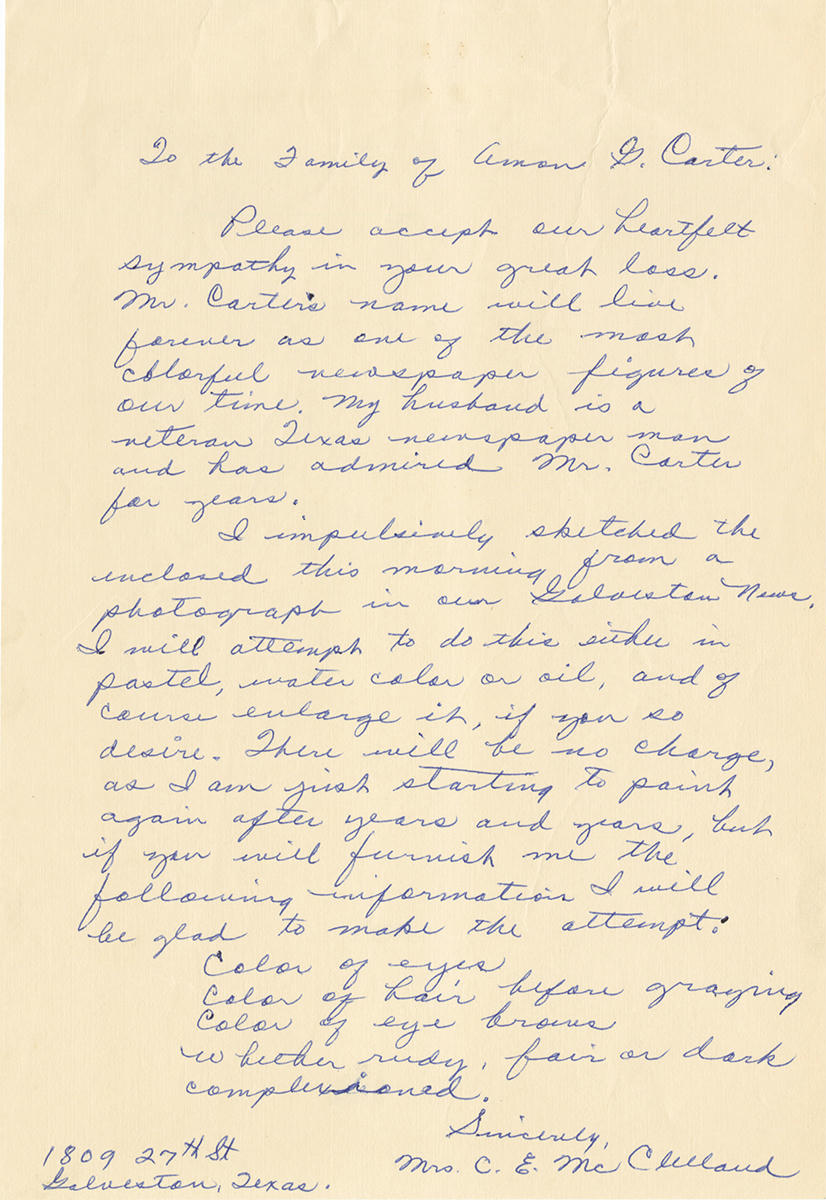 To the Family of Amon G. Carter:
Please accept our heartfelt
sympathy in your great loss.
Mr. Carter's name will live
forever as one of the most
colorful newspaper figures of
our time. My husband is a
veteran Texas newspaper man
and has admired Mr. Carter
for years.
I impulsively sketched the
enclosed this morning from a
photograph in our Galveston News.
I will attempt to do this either in
pastel, water color or oil, and of
course enlarge it, if you so
desire. There will be no charge,
as I am just starting to paint
again after years and years, but
if you will furnish me the
following information I will
be glad to make the attempt:
Color of eyes
Color of hair before graying
Color of eye brows
Whether rudy, fair or dark
complexioned.
Sincerely,
Mrs. C. E. McClelland
1809 27th St
Galveston, Texas.